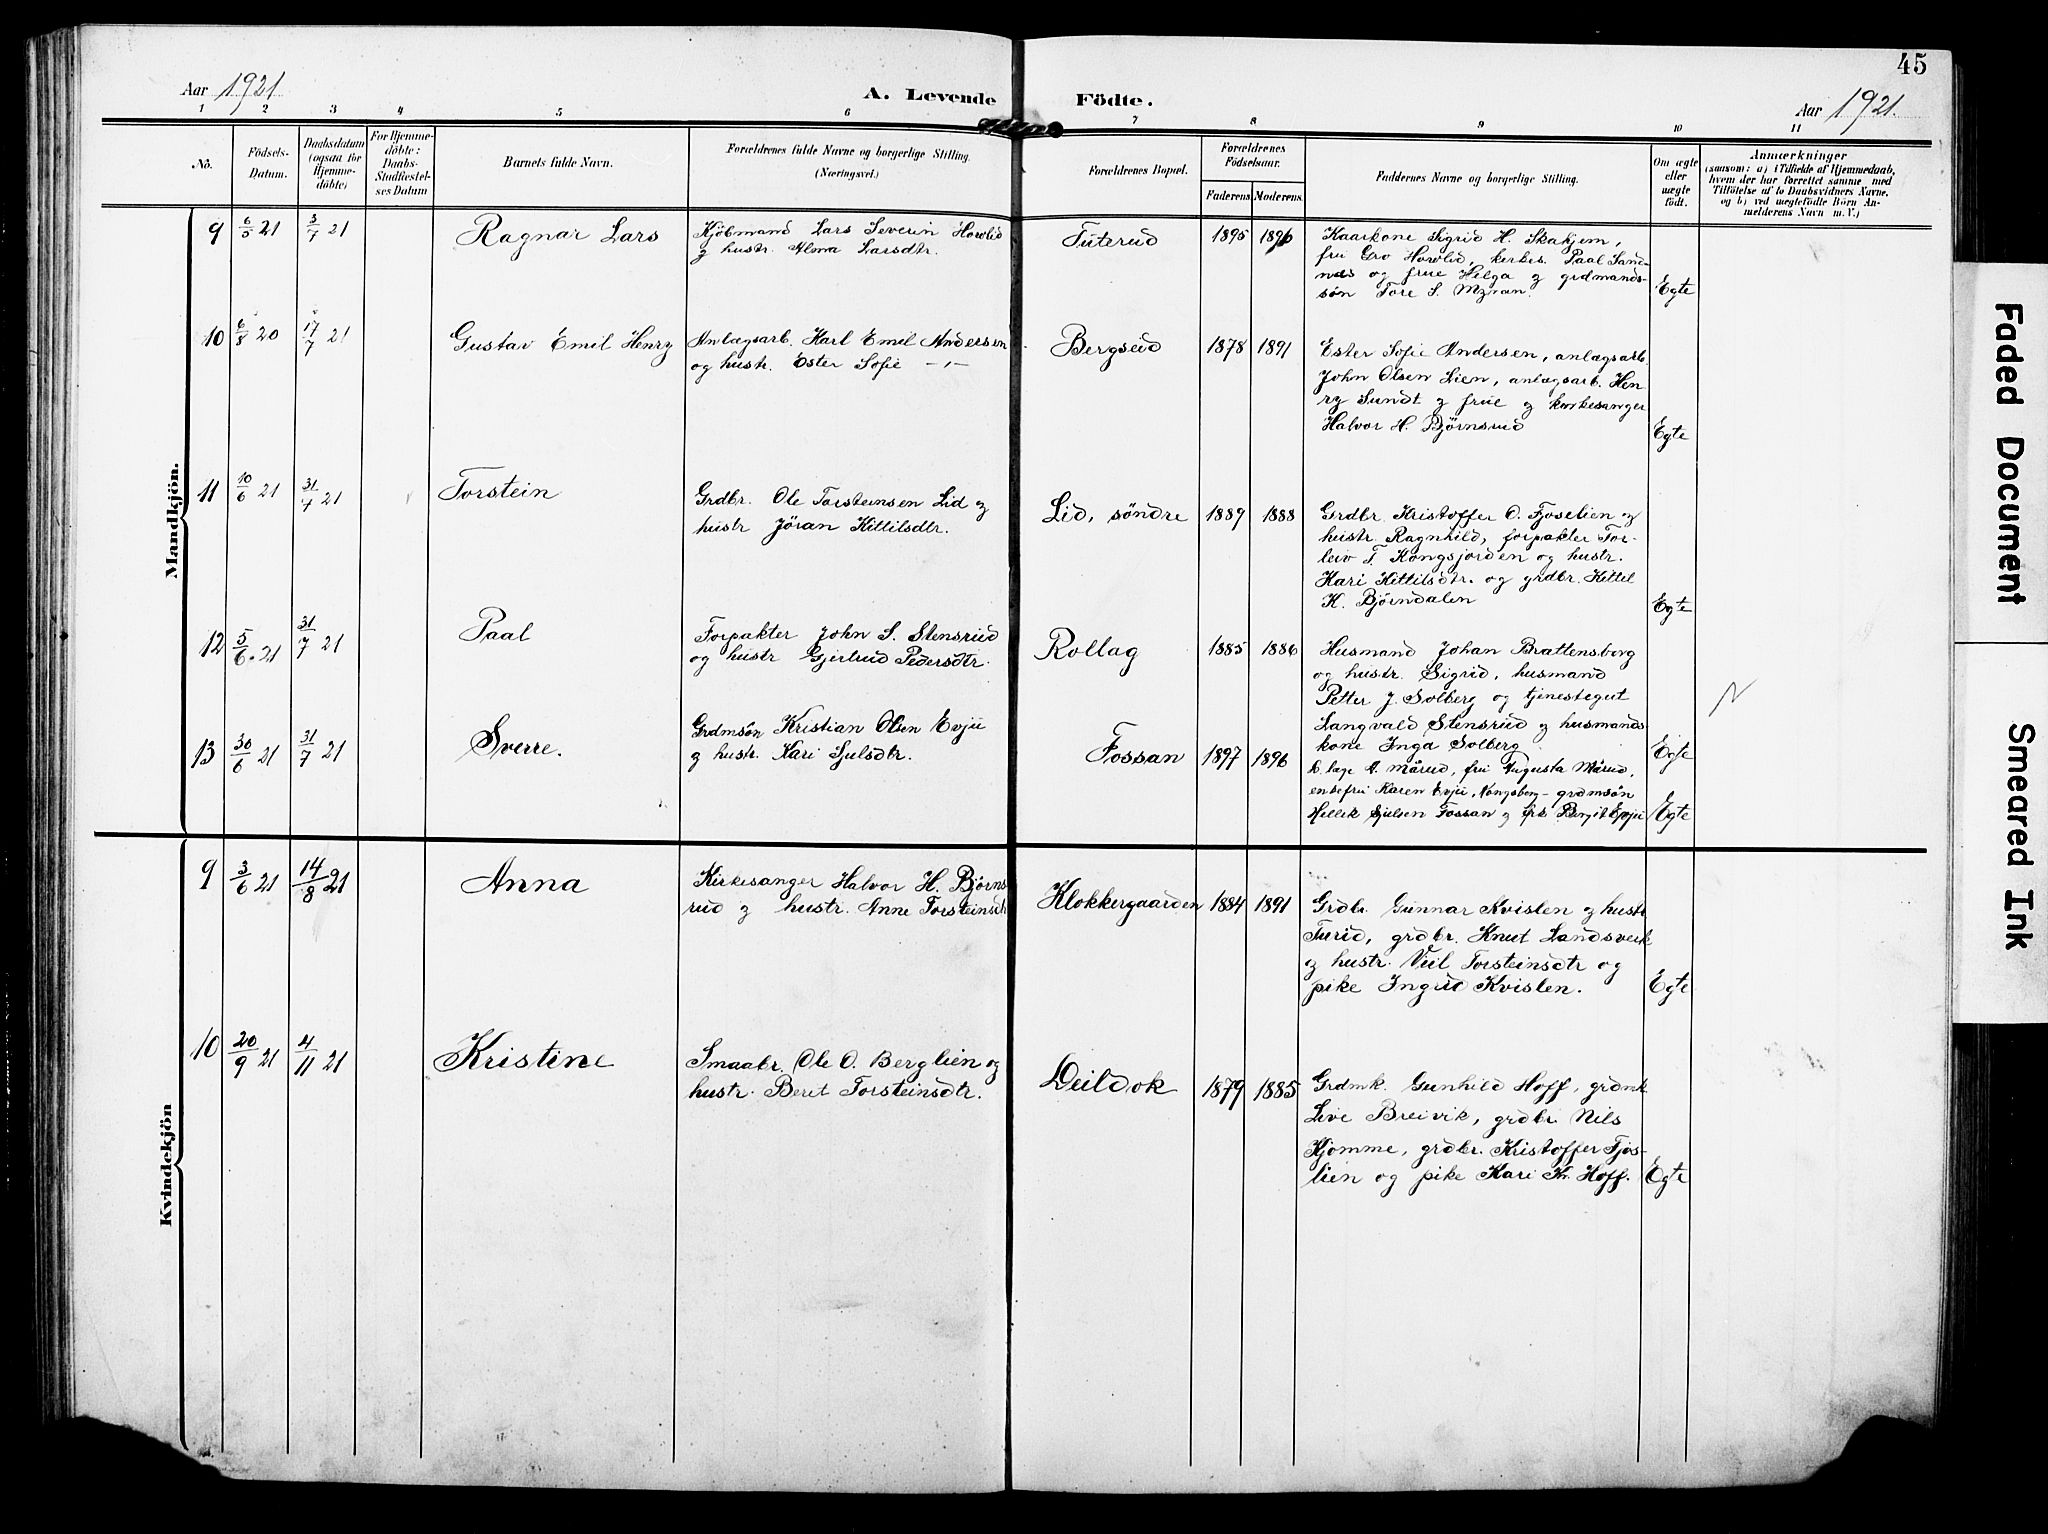 45
Aar 1921
A. Levende Födte.
Aar 1921.
1 2 3 4 5 6 7 8 9 10 11
Nô.
Födsels-
Datum.
Daabsdatum
(ogsaa for
Hjemme-
döbte)
For Hjemme-
döbte:
Daabs-
Stadfæstel-
ses Datum
Barnets fulde Navn.
Forældrenes fulde Navne og borgerlige Stilling.
(Næringsvei.)
Forældrenes Bopæl.
Forældrenes
Födselsaar.
Faderens Moderens.
Faddernes Navne og borgerlige Stilling.
Om ægte
eller
uægte
födt.
Anmærkninger
(saasom: a) i Tilfælde af Hjemmedaab,
hvem der har forrettet samme med
Tilföielse af to Daabsvidners Navne.
og b) ved uægtefödte Börn An-
melderens Navn m. V.)
Mandkjön.
9 6/5 21 3/7 21 Ragnar Lars
Kjöbmand Lars Severin Hovlid
og hustr. Alma Larsdtr.
Tuterud 1895 1896
Kaarkone Sigrid H. Skahjem,
fru Gro Hovlid, kirkes. Paal Sand-
nes og frue Helga og grdmands-
sön Tore S. Myran.
Egte
10 6/8 20 17/7 21 Gustav Emil Henry
Anlægsarb. Karl Emil Andersen
og hustr. Ester Sofie -,,-
Bergseid 1878 1891
Ester Sofie Andersen, anlægsarb.
John Olsen Lien, anlægsarb. Hen
ry Sundt og frue og kirkesanger
Halvor H. Björnsrud
Egte
11 10/6 21 31/7 21 Torstein
Grdbr. Ole Torsteinsen Lid og
hustr Jöran Kittilsdtr.
Lid, söndre 1889 1888
Grdbr. Kristoffer O. Fjoselien og
hustr. Ragnhild, forpakter Tor-
leiv T. Kongsjorden og hustr.
Kari Kittilsdtr. og grdbr. Kittil
K. Björndalen
Egte
12 5/6 21 31/7 21 Paal
Forpakter John S. Stensrud
og hustr Gjertrud Pedersdtr.
Rollag 1885 1886
Husmand Johan Brattensberg
og hustr. Sigrid, husmand
Petter J. Solberg og tjenestegut
Langvald Stensrud og husmands
kone Inga Solberg
Egte
13 30/6 21 31/7 21 Sverre.
Grdmsön Kristian Olsen Evju
og hustr. Kari Sjulsdtr.
Fossan 1897 1896
A. Mårud, fru Augusta Mårud,
enkefru Karen Evju, Kongsberg - grdmsön
Hellik Sjulsen Fossan og frk Birgit Evju
Egte
Kvindekjön
9 3/6 21 14/8 21 Anna
Kirkesanger Halvor H. Björns
rud og hustr. Anne Torsteinsdtr
Klokkergaarden 1884 1891
Grdbr. Gunnar Kvislen og hustr
Turid, grdbr. Knut Landsverk
og hustr. Torsteinsdtr og
pike Ingrid Kvislen.
Egte
10 20/9 21 4/11 21 Kristine
Smaabr. Ole O. Berglien og
hustr. Beret Torsteinsdtr.
Deildok 1879 1885
Grdmk. Gunhild Hoff, grdmk
Live Breivik, grdbr Nils
Kjomme, grdbr. Kristoffer Fjos-
lien og pike Kari Kr. Hoff.
Egte
Faded Document
Smeared Ink